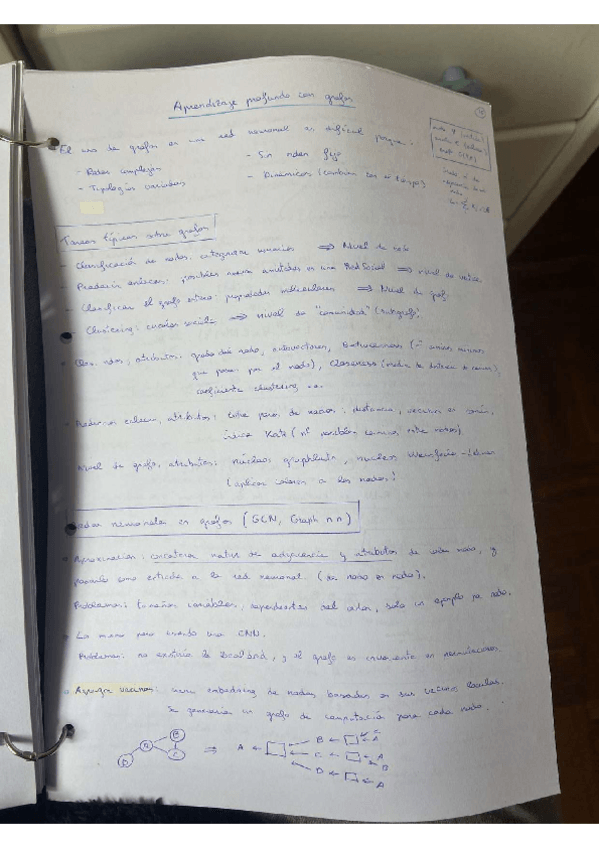 Aprendizaje profundo con grafos
El uso de grafos en una red neuronal es difícil porque:
- Redes complejas
- Sin orden fijo
- Topologías variables
- Dinámicos (cambian con el tiempo)
Tareas típicas sobre grafos
- Clasificación de nodos: categorizar usuarios ⇒ Nivel de nodo
- Predicción enlaces: posibles nuevas amistades en una Red Social ⇒ nivel de
- Clasificar el grafo entero: propiedades moleculares ⇒ Nivel de grafo
- Clustering: círculos sociales ⇒ nivel de "comunidad" (subgrafo)
nodos, atributos: grado del nodo, (nº caminos mínimos
que pasan por el nodo), Closeness (media de distancia de caminos),
coeficiente clustering, ...
enlaces, atributos: entre pares de nodos: distancia, vecinos en común,
índice Katz (nº posibles caminos entre nodos)
Nivel de grafo, atributos: núcleos graphlets, núcleos Weisfeiler-Lehman
(aplicar colores a los nodos)
Redes neuronales en grafos (GCN, Graph nn)
Aproximación: concatenar matriz de adyacencia y atributos de cada nodo, y
pasarlo como entrada a la red neuronal. (de nodo en nodo).
Problemas: tamaños variables, dependientes del orden, solo un ejemplo por nodo.
Lo mismo pero usando una CNN.
Problemas: no existiría la localidad, y el grafo es invariante en permutaciones.
Agregar vecinos: crear embedding de nodos basados en sus vecinos locales.
Se generaría un grafo de computación para cada nodo.
A B C D ⇒ A ← B ← C A
C ← A B
D ← A